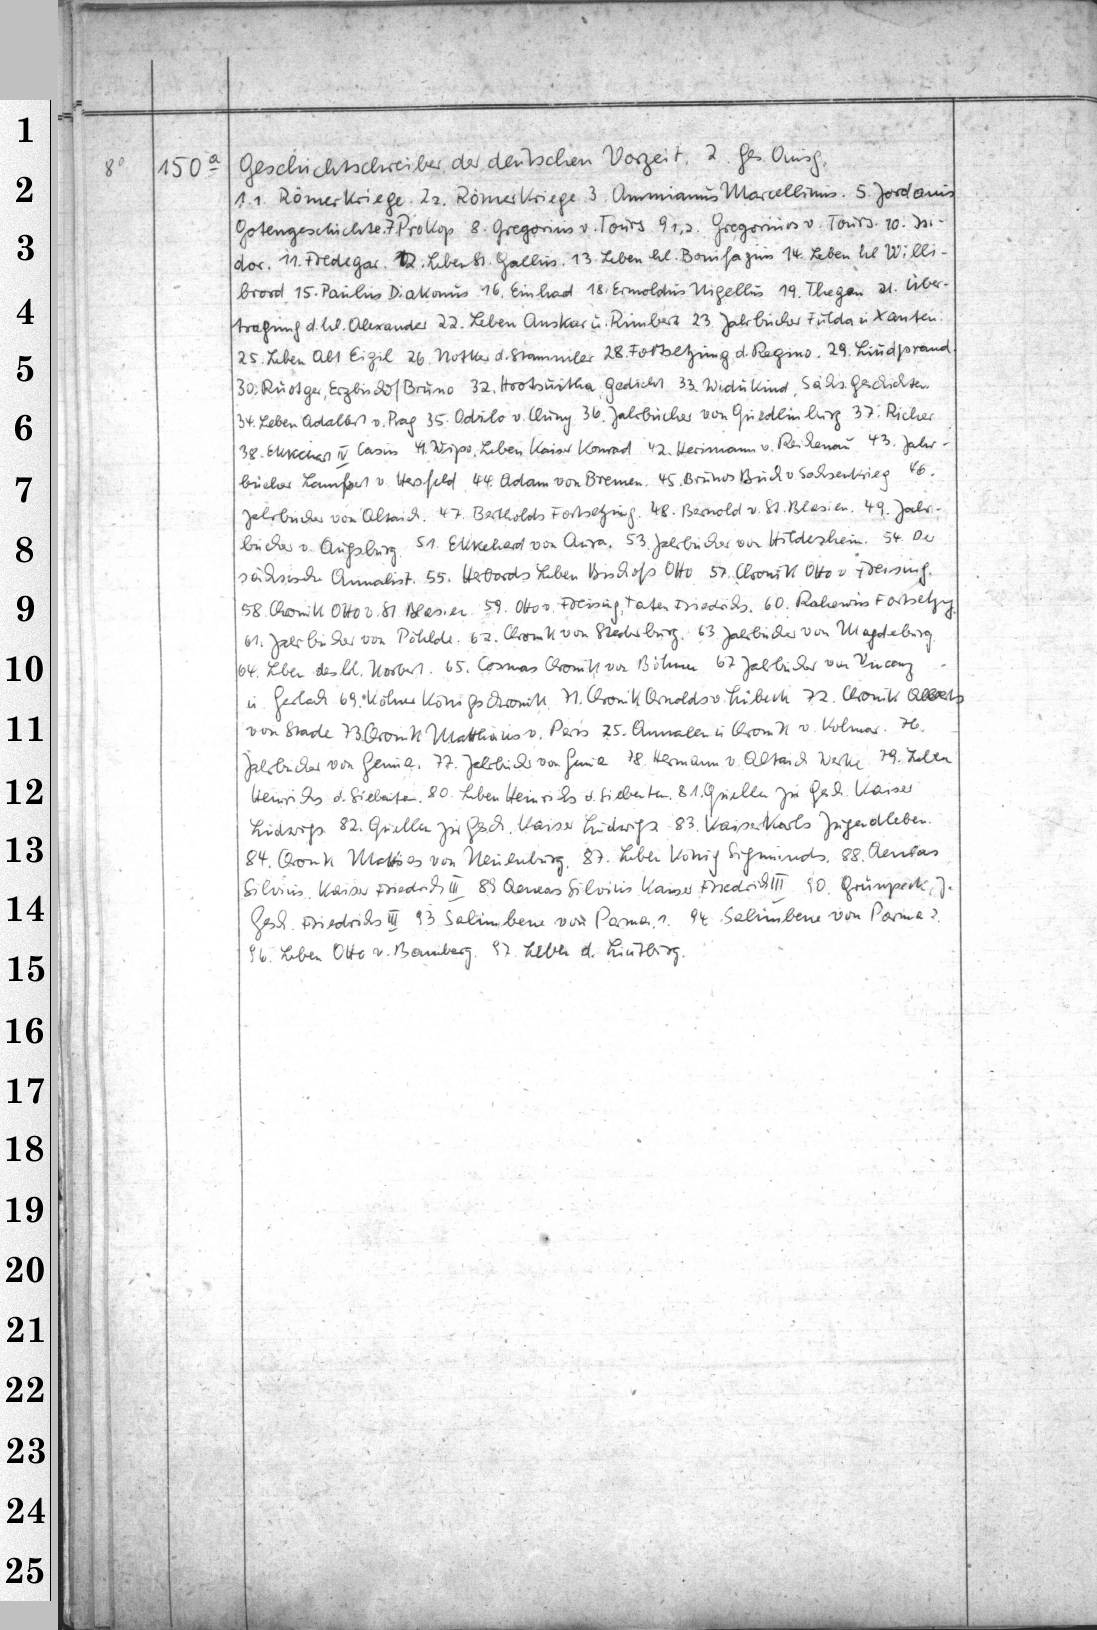 1
8° 150a Geschichtschreiber der deutschen Vorzeit. 2. Ges. Ausg.
2
1.1. Römerkriege 2.2. Römerkriege 3. Ammianus Marcellinus. 5. Jordanis
Gotengeschichte. 7 Prokop 8. Gregorius v. Tours 9 1,2. Gregorius v. Tours. 10. Isi-
3
dor. 11. Fredegar. 12. Leben St. Gallus. 13 Leben hl. Bonifazius 14. Leben hl Willi-
brord 15. Paulus Diakonus 16. Einhard 18. Ermoldus Nigellus 19. Thegan 21. Über-
4
tragung d. hl. Alexander 22. Leben Anskar u. Rimbert 23 Jahrbücher Fulda u Xanten
25. Leben Abt Eigil 26. Notker d. Stammler 28. Fortsetzung d. Regino. 29. Liudprand.
5
30. Ruotger, Erzbischof Bruno 32. Hrotsuitha, Gedicht 33. Widukind, Sächs. Geschichten.
34. Leben Adalbert v. Prag 35. Odilo v. Cluny 36. Jahrbücher von Quedlinburg 37. Richer
6
38. Ekkehart IV Casus 41. Wipo, Leben Kaiser Konrad 42. Herimann v. Reichenau 43. Jahr-
bücher Lambert v. Hersfeld 44. Adam von Bremen. 45. Brunos Buch v Sachsenkrieg 46.
7
Jahrbücher von Altaich. 47. Bertholds Fortsetzung. 48. Bernold v. St. Blasien. 49. Jahr-
bücher v. Augsburg. 51. Ekkehard von Aura. 53. Jahrbücher von Hildesheim. 54. Der
8
sächsische Annalist. 55. Herbords Leben Bischofs Otto 57. Chronik Otto v Freising.
58. Chronik Otto v. St Blasien 59. Otto v. Freising, Taten Friedrichs. 60. Rahewins Fortsetzg.
9
61. Jahrbücher von Pöhlde. 62. Chronik von Stederburg. 63 Jahrbücher von Magdeburg
64. Leben des hl. Norbert. 65. Cosmas Chronik von Böhmen 67 Jahrbücher von Vincenz
10
u. Gerlach 69. Kölner Königschronik 71. Chronik Arnolds v. Lübeck 72. Chronik Alberts
von Stade 73. Chronik Matthäus v. Paris 75. Annalen u Chronik v. Kolmar. 76.
11
Jahrbücher von Genua. 77. Jahrbücher von Genua 78. Hermann v. Altaich Werke 79. Leben
Heinrichs d. Siebenten. 80. Leben Heinrichs d. Siebenten. 81. Quellen zur Gesch. Kaiser
12
Ludwigs 82. Quellen zur Gesch. Kaiser Ludwigs 83. Kaiser Karls Jugendleben.
84. Chronik Mathias von Neuenburg. 87. Leben König Sigmunds. 88. Aeneas
13
Silvius. Kaiser Friedrich III 89 Aeneas Silvius Kaiser Friedrich III 90. Grünpeck, J.
14
Gesch. Friedrichs III 93 Salimbene von Parma. 1. 94. Salimbene von Parma 2.
96. Leben Otto v. Bamberg. 97. Leben d. Liutbirg.
15
16
17
18
19
20
21
22
23
24
25